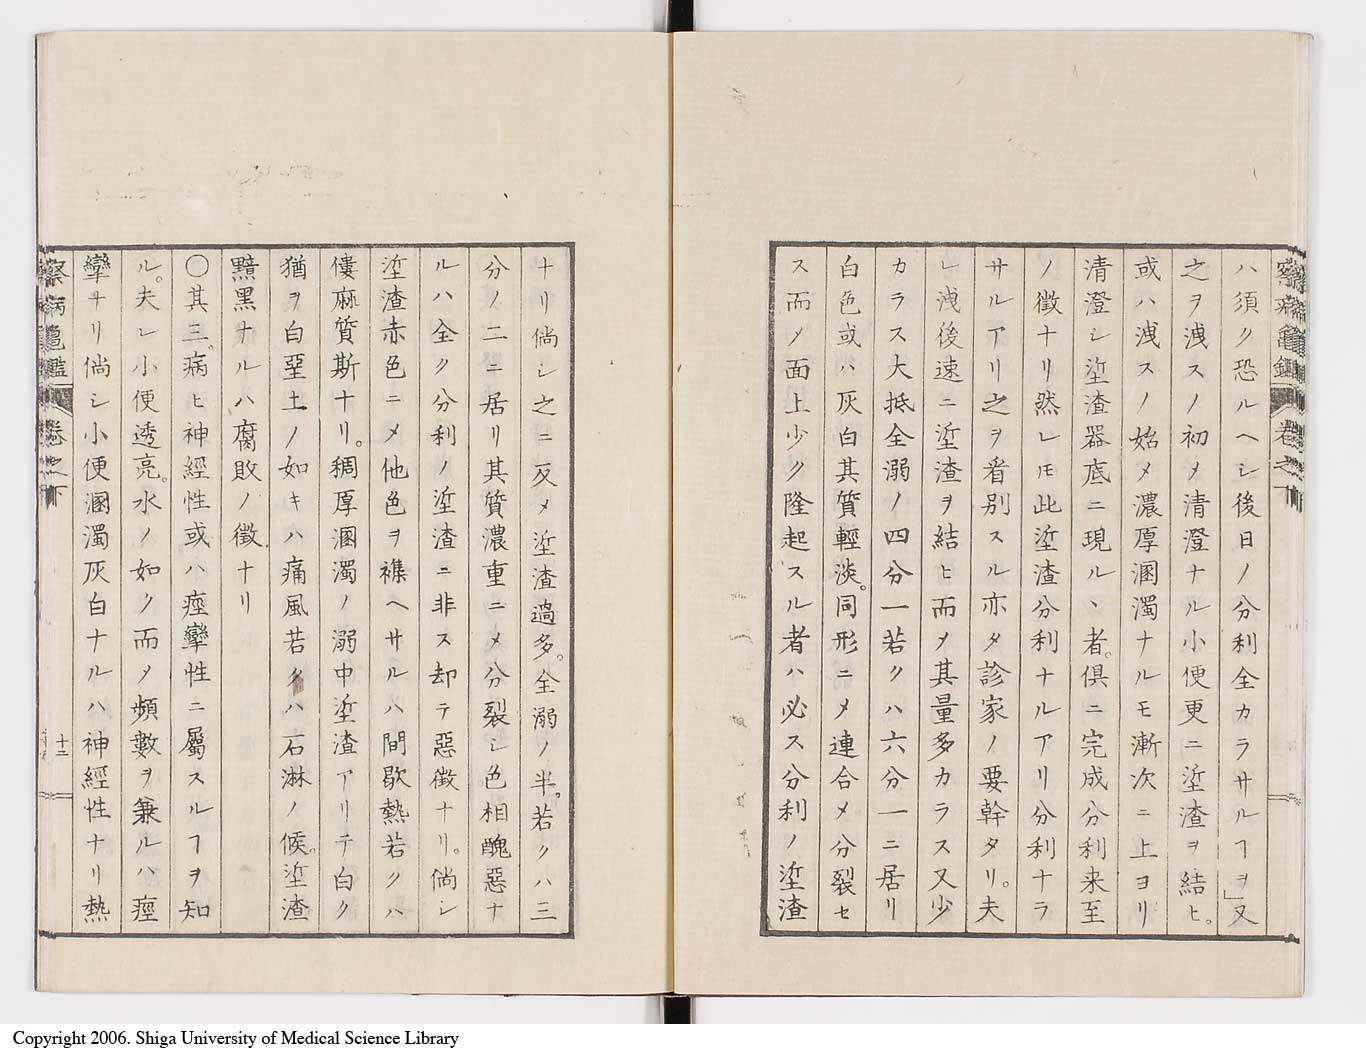 察病亀鑑 卷之下
ハ須ク恐ルヘシ後日ノ分利全カラサルヿヲ」又
之ヲ洩スノ初メ清澄ナル小便更ニ埿渣ヲ結ヒ。
或ハ洩スノ始メ濃厚溷濁ナルモ漸次ニ上ヨリ
清澄シ埿渣器底ニ現ル、者。俱ニ完成分利来至
ノ徵ナリ然レ𪜈此埿渣分利ナルアリ分利ナラ
サルアリ之ヲ看別スル亦タ診家ノ要幹タリ。夫
レ洩後速ニ埿渣ヲ結ヒ而メ其量多カラス又少
カラス大抵全溺ノ四分一若クハ六分一ニ居リ
白色或ハ灰白其質輕淡。同形ニメ連合メ分裂セ
ス而メ面上少ク隆起スル者ハ必ス分利ノ埿渣
ナリ倘シ之ニ反メ埿渣過多。全溺ノ半。若クハ三
分ノ二ニ居リ其質濃重ニメ分裂シ色相醜惡ナ
ルハ全ク分利ノ埿渣ニ非ス却テ惡徵ナリ。倘シ
埿渣赤色ニメ他色ヲ襍ヘサルハ間歇熱若クハ
僂麻質斯ナリ。稠厚溷濁ノ溺中埿渣アリテ白ク
猶ヲ白堊土ノ如キハ痛風若クハ石淋ノ候。埿渣
黯黑ナルハ腐敗ノ徵ナリ
〇其三。病ヒ神經性或ハ痙攣性ニ屬スルヿヲ知
ル。夫レ小便透亮。水ノ如ク而メ頻數ヲ兼ルハ痙
攣ナリ倘シ小便溷濁灰白ナルハ神經性ナリ熱
察病亀鑑 卷之下
十二
Copyright 2006. Shiga University of Medical Science Library